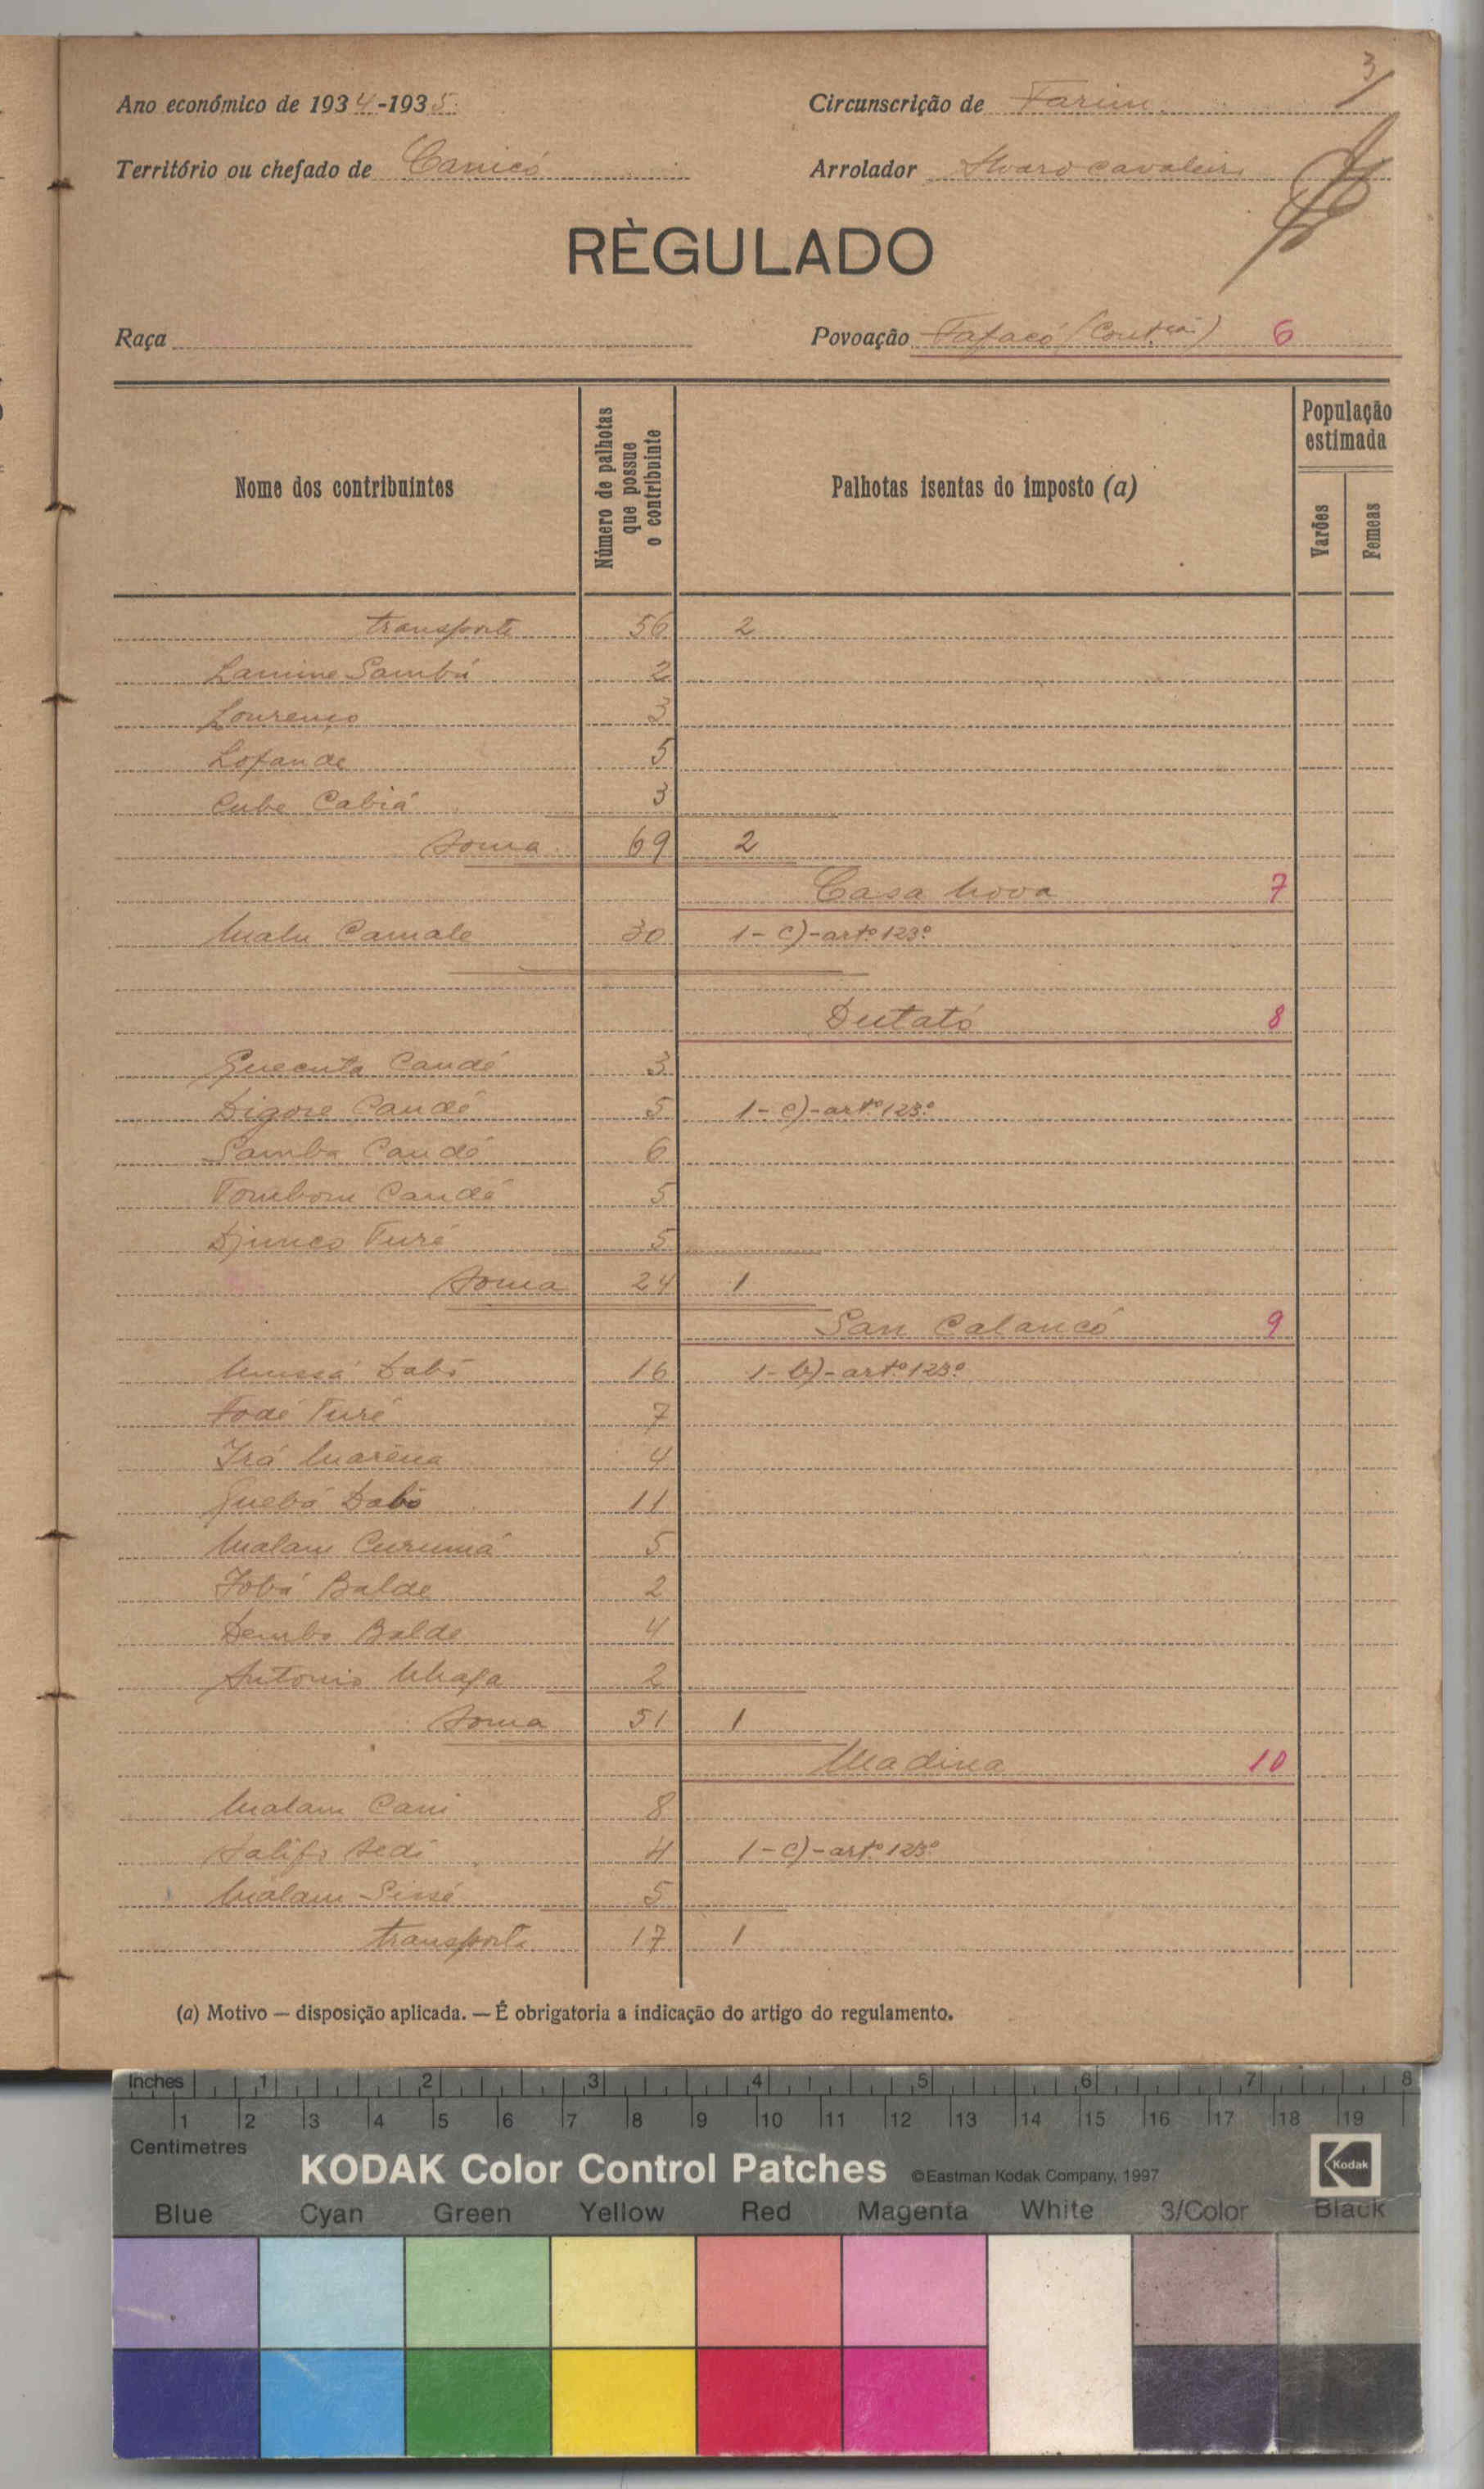 3
Ano económico de 1934-1935. Circunscrição de Farim
Território ou chefado de Canicó Arrolador Alvaro Cavaleiro
RÈGULADO
Raça Povoação Fafacó (Cont.ção) 6
Nome dos contribuintes
Número de palhotas que possue o contribuinte
Palhotas isentas do imposto (a)
População estimada
Varões
Femeas
transporte 56 2
Lamine Sambú 2
Lourenço 3
Lofande 5
Cube Cabiá 3
Soma 69 2
Casa Nova 7
Malu Camale 30 1-c)-artº 123º
Dutató 8
Quecuta Candé 3
Digore Candé 5 1-c)-artº 123º
Samba Candé 6
Tombom Candé 5
Djunco Turé 5
Soma 24 1
San Calancó 9
Mussá Dabó 16 1-b)-artº 123º
Fodé Turé 7
Irá Marêna 4
Quebá Dabó 11
Malam Curumá 5
Jobá Balde 2
Dembo Balde 4
Antonio Mhafa 2
Soma 51 1
Madina 10
Malam Cani 8
Salifo Sedi 4 1-c)-artº 123º
Malam Sissé 5
transporte 17 1
(a) Motivo — disposição aplicada. — É obrigatoria a indicação do artigo do regulamento.
Inches 1 2 3 4 5 6 7 8
1 2 3 4 5 6 7 8 9 10 11 12 13 14 15 16 17 18 19
Centimetres
KODAK Color Control Patches ©Eastman Kodak Company, 1997 Kodak
Blue Cyan Green Yellow Red Magenta White 3/Color Black